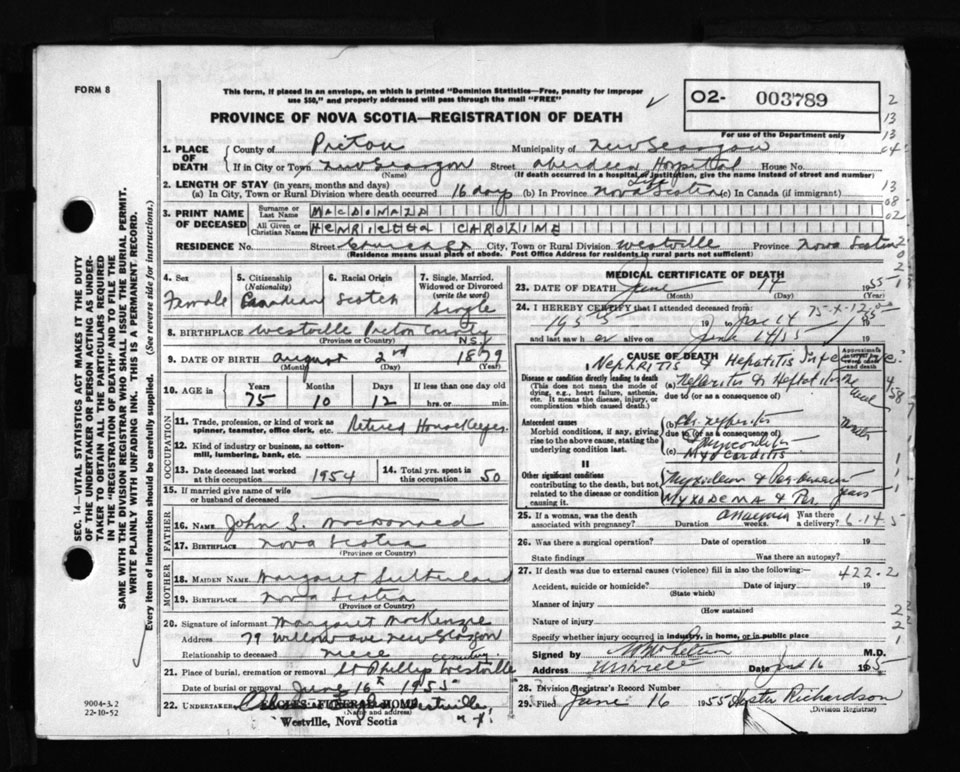 FORM 8
This form, if placed in an envelope, on which is printed "Dominion Statistics—Free, penalty for improper
use $50," and properly addressed will pass through the mail "FREE"
PROVINCE OF NOVA SCOTIA—REGISTRATION OF DEATH
02- 003789
For use of the Department only
1. PLACE OF DEATH
County of Pictou Municipality of New Glasgow
If in City or Town New Glasgow Street Aberdeen Hospital House No.
(Name) (If death occurred in a hospital or institution, give the name instead of street and number)
2. LENGTH OF STAY (in years, months and days)
(a) In City, Town or Rural Division where death occurred 16 days (b) In Province Life Nova Scotia (c) In Canada (if immigrant)
3. PRINT NAME OF DECEASED
Surname or Last Name MACDONALD
All Given or Christian Names HENRIETTA CAROLINE
RESIDENCE No. Street Church St City, Town or Rural Division Westville Province Nova Scotia
(Residence means usual place of abode. Post Office Address for residents in rural parts not sufficient)
4. Sex Female
5. Citizenship (Nationality) Canadian
6. Racial Origin Scotch
7. Single, Married, Widowed or Divorced (write the word) Single
8. BIRTHPLACE Westville Pictou County N.S.
(Province or Country)
9. DATE OF BIRTH August 2nd 1879
(Month) (Day) (Year)
10. AGE in Years 75 Months 10 Days 12 If less than one day old hrs. or min.
OCCUPATION
11. Trade, profession, or kind of work as spinner, teamster, office clerk, etc. Retired HouseKeeper
12. Kind of industry or business, as cotton-mill, lumbering, bank, etc.
13. Date deceased last worked at this occupation 1954
14. Total yrs. spent in this occupation 50
15. If married give name of wife or husband of deceased
FATHER
16. NAME John S. MacDonald
17. BIRTHPLACE Nova Scotia
(Province or Country)
MOTHER
18. MAIDEN NAME Margaret Sutherland
19. BIRTHPLACE Nova Scotia
(Province or Country)
20. Signature of informant Margaret MacKenzie
Address 79 Willow Ave New Glasgow
Relationship to deceased niece
21. Place of burial, cremation or removal St Phillip Cemetery Westville
Date of burial or removal June 16th 1955
22. UNDERTAKER FUNERAL HOME
(Name and address)
Westville, Nova Scotia
MEDICAL CERTIFICATE OF DEATH
23. DATE OF DEATH June 14 1955
(Month) (Day) (Year)
24. I HEREBY CERTIFY that I attended deceased from:
1955 19 to June 14 1955
and last saw her alive on June 14/55 19
CAUSE OF DEATH
Approximate interval between onset and death
NEPHRITIS & HEPATITIS
I
Disease or condition directly leading to death
(This does not mean the mode of dying, e.g., heart failure, asthenia, etc. It means the disease, injury, or complication which caused death.)
(a) Nephritis & Hepatitis
due to (or as a consequence of)
Antecedent causes
Morbid conditions, if any, giving rise to the above cause, stating the underlying condition last.
(b) Chr. nephritis
due to (or as a consequence of)
(c) Myocarditis
MYOCARDITIS
II
Other significant conditions
contributing to the death, but not related to the disease or condition causing it.
MYXODEMA & PER.
years
25. If a woman, was the death associated with pregnancy? Duration weeks. Was there a delivery?
anaemia
26. Was there a surgical operation? Date of operation 19
State findings Was there an autopsy?
27. If death was due to external causes (violence) fill in also the following: 422.2
Accident, suicide or homicide? Date of injury 19
(State which)
Manner of injury
(How sustained
Nature of injury
Specify whether injury occurred in industry, in home, or in public place
Signed by M.D.
Address Westville Date June 16 1955
28. Division Registrar's Record Number
29. Filed June 16 1955 Hester Richardson
(Division Registrar)
SEC. 14—VITAL STATISTICS ACT MAKES IT THE DUTY
OF THE UNDERTAKER OR PERSON ACTING AS UNDER-
TAKER TO OBTAIN ALL THE PARTICULARS REQUIRED
IN THE "REGISTRATION OF DEATH" AND TO FILE THE
SAME WITH THE DIVISION REGISTRAR WHO SHALL ISSUE THE BURIAL PERMIT.
WRITE PLAINLY WITH UNFADING INK. THIS IS A PERMANENT RECORD.
Every item of information should be carefully supplied. (See reverse side for instructions.)
9004-3.2
22-10-52